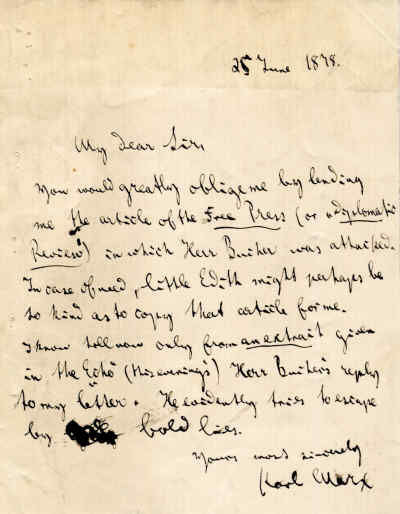 25 June 1878.
My dear Sir,
You would greatly oblige me by lending
me the article of the Free Press (or "diplomatic
Review") in which Herr Bucher was attacked.
In case of need, little Edith might perhaps be
so kind as to copy that article for me.
I know till now only from an extrait given
in the "Echo" Herr Bucher's reply
to my letter. He evidently tries to escape
by bold lies.
Yours most sincerely
Karl Marx